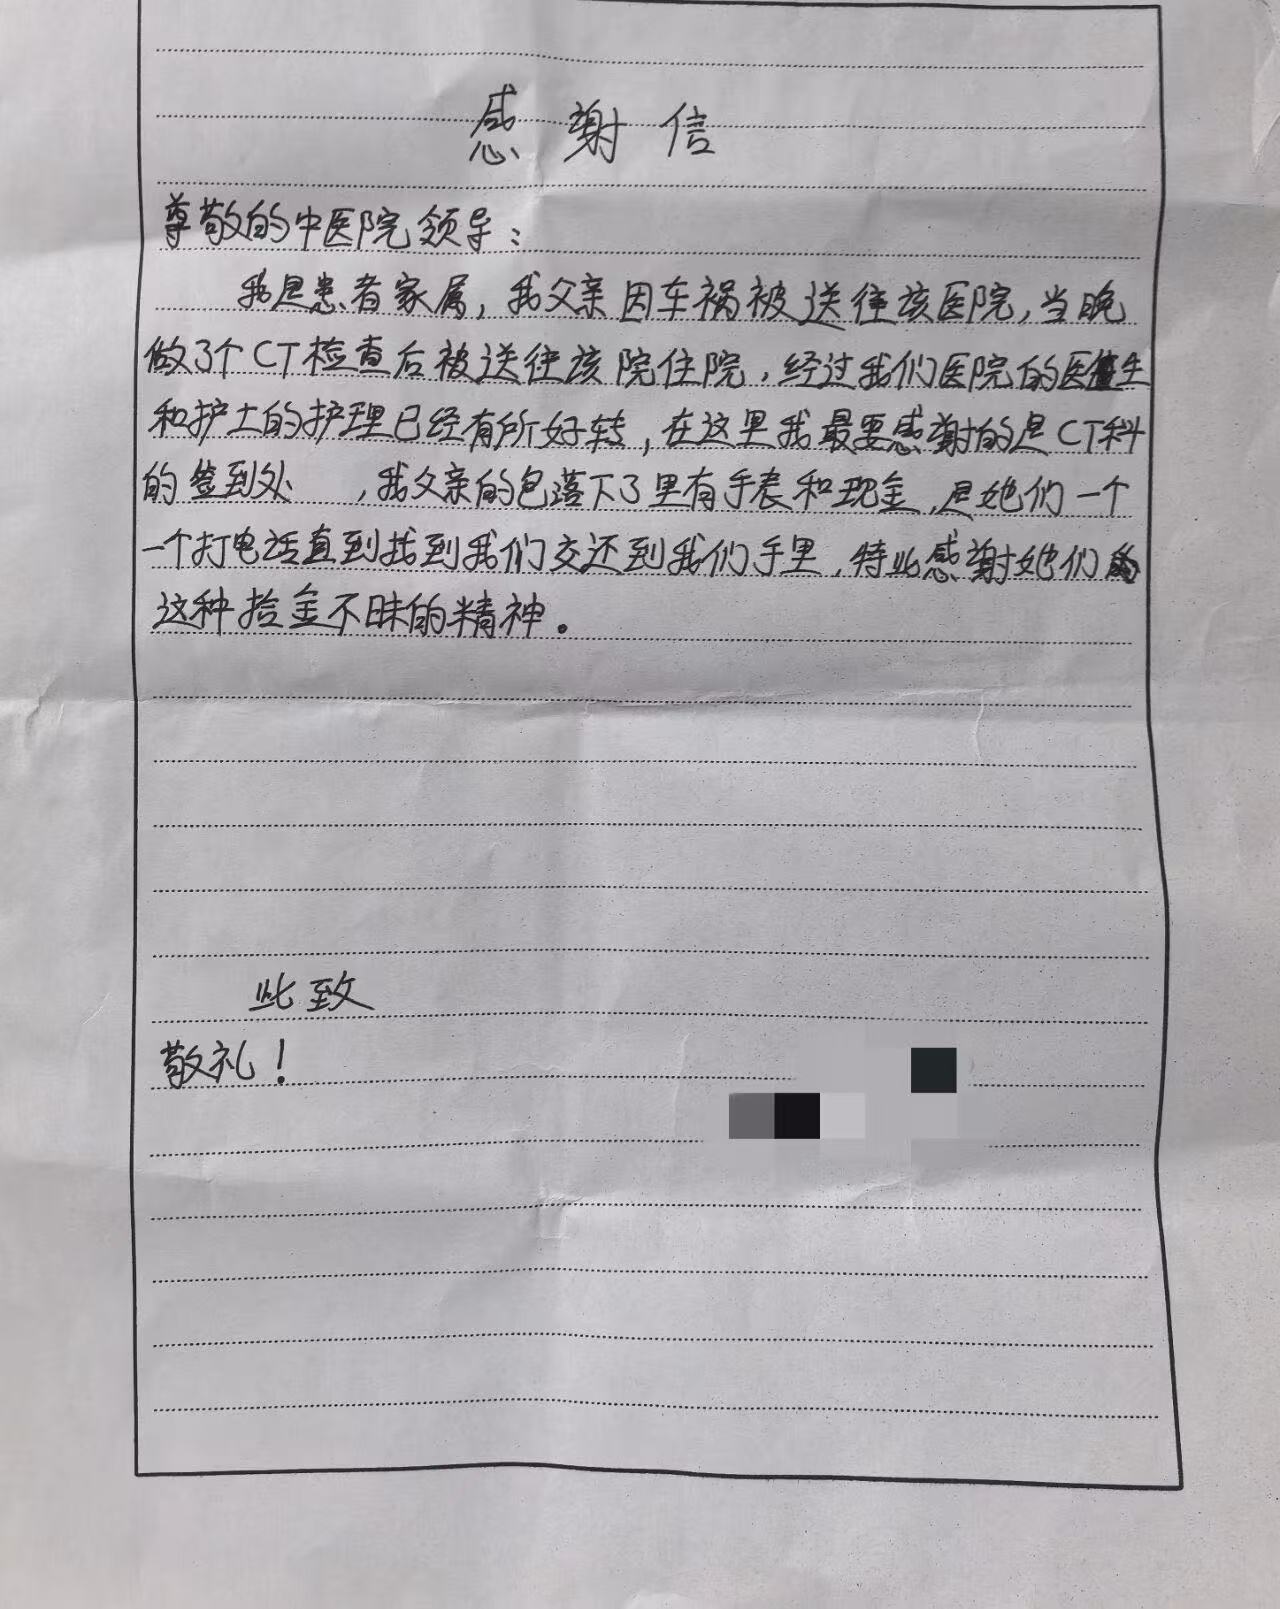 感谢信
尊敬的中医院领导：
我是患者家属，我父亲因车祸被送往该医院，当晚
做了个CT检查后被送往该院住院，经过我们医院的医生
和护士的护理已经有所好转，在这里我最要感谢的是CT科
的签到处 ，我父亲的包落下了里有手表和现金，是她们一个
一个打电话直到找到我们交还到我们手里，特此感谢她们的
这种拾金不昧的精神。
此致
敬礼！